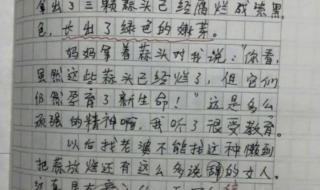 拿出了三颗蒜头已经腐烂成紫黑
色，长出了绿色的嫩芽。
妈妈拿着蒜头对我说："你看，
虽然这些蒜头已经烂了，但它们
仍然孕育了新生命！"这是多么
顽强的精神啊，我听了很受教育。
以后找老婆不能找这种懒到
把蒜放烂还有这么多说词的女人。